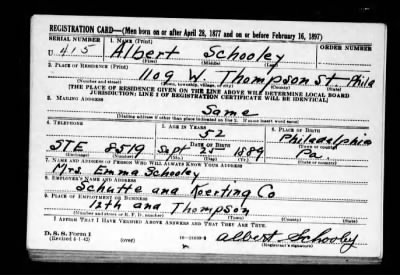 REGISTRATION CARD—(Men born on or after April 28, 1877 and on or before February 16, 1897)
SERIAL NUMBER 1. NAME (Print) ORDER NUMBER
U 415 Albert Schooley
(First) (Middle) (Last)
2. PLACE OF RESIDENCE (Print)
1109 W. Thompson St Phila
(Number and street) (Town, township, village, or city) (County) (State)
[THE PLACE OF RESIDENCE GIVEN ON THE LINE ABOVE WILL DETERMINE LOCAL BOARD
JURISDICTION; LINE 2 OF REGISTRATION CERTIFICATE WILL BE IDENTICAL]
3. MAILING ADDRESS
Same
(Mailing address if other than place indicated on line 2. If same insert word same)
4. TELEPHONE 5. AGE IN YEARS 6. PLACE OF BIRTH
52 Philadelphia
DATE OF BIRTH (Town or county)
STE 8519 Sept 25 1889 Pa.
(Exchange) (Number) (Mo.) (Day) (Yr.) (State or country)
7. NAME AND ADDRESS OF PERSON WHO WILL ALWAYS KNOW YOUR ADDRESS
Mrs. Emma Schooley
8. EMPLOYER'S NAME AND ADDRESS
Schutte and Koerting Co
9. PLACE OF EMPLOYMENT OR BUSINESS
12th and Thompson
(Number and street or R. F. D. number) (Town) (County) (State)
I AFFIRM THAT I HAVE VERIFIED ABOVE ANSWERS AND THAT THEY ARE TRUE.
D. S. S. Form 1
(Revised 4-1-42) (over) Albert Schooley